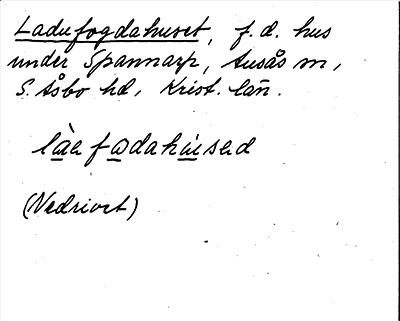 Ladufogdahuset, f.d. hus
under Spannarp, Ausås sn,
S. Åsbo hd, Krist. län.
làa fωdahúsad
(Nedrivet)